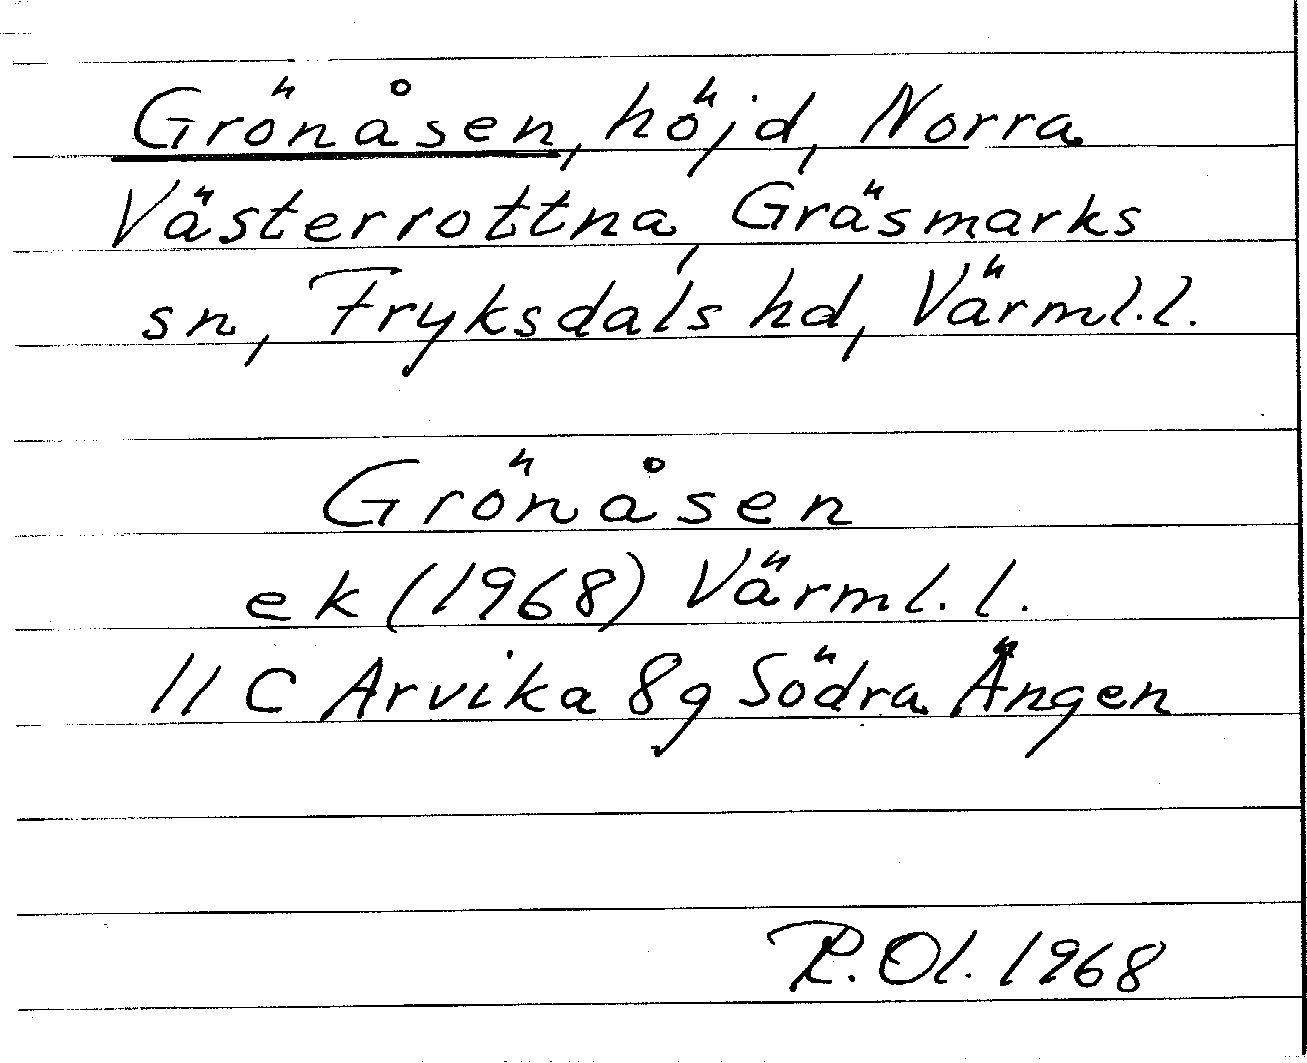 Grönåsen, höjd, Norra
Västerrottna, Gräsmarks
sn, Fryksdals hd, Värml.l.
Grönåsen
ek (1968) Värml.l.
11 C Arvika 8g Södra Ängen
R.Ol. 1968